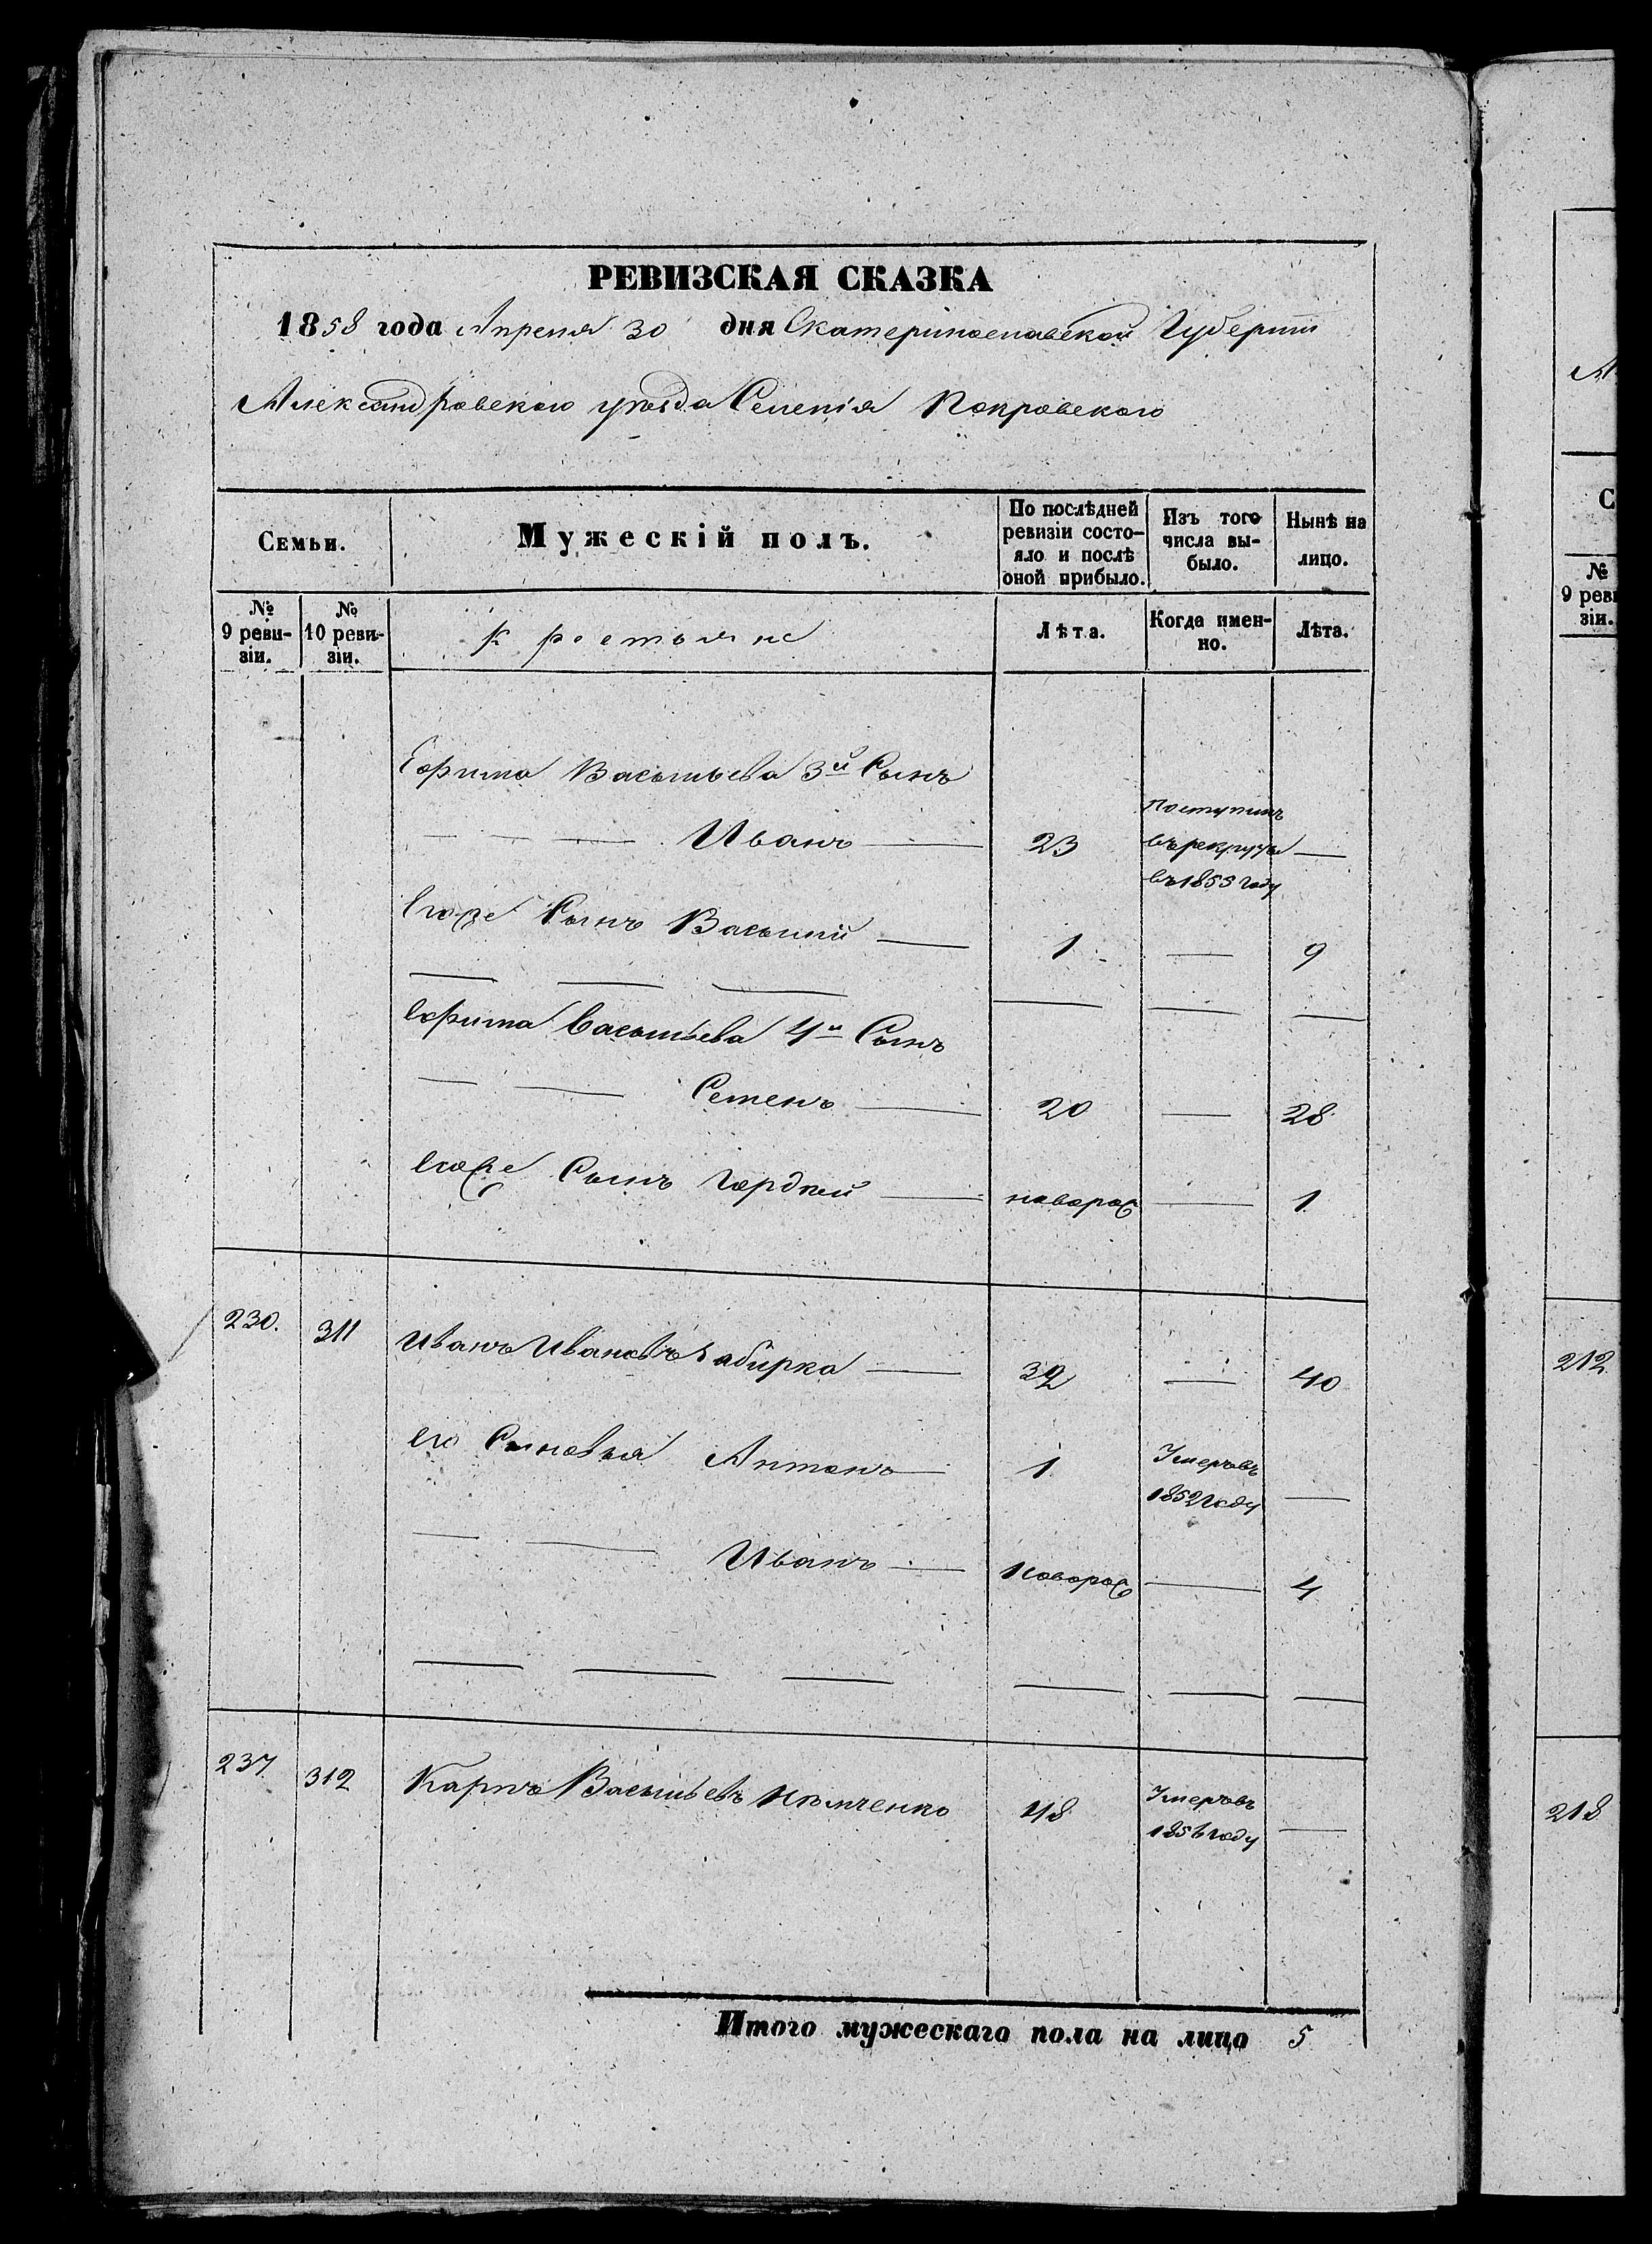 РЕВИЗСКАЯ СКАЗКА
1858 года Апреля 30 дня Екатеринославской Губерніи
Александровскаго уѣзда Селенія Покровскаго
Семьи.
Мужескій полъ.
По послѣдней ревизіи состояло и послѣ оной прибыло.
Изъ того числа выбыло.
Нынѣ на лицо.
№ 9 ревизіи.
№ 10 ревизіи.
Крестьяне
Лѣта.
Когда именно.
Лѣта.
Ефима Васильева 3й Сынъ
Поступилъ
Иванъ 23 въ рекруты —
въ 1853 году
Егоже Сынъ Василий 1 — 9
Ефима Васильева 4й Сынъ
Семенъ 20 — 28
Егоже Сынъ Гордѣй новорож — 1
230. 311 Иванъ Ивановъ 32 — 40
его Сыновья Антонъ 1 Умеръ въ 1852 году —
Иванъ новорож — 4
237 312 Карпъ Васильевъ Нѣмченко 48 Умеръ въ 1856 году —
Итого мужескаго пола на лицо 5
С
№
9 реви
зіи.
212
218